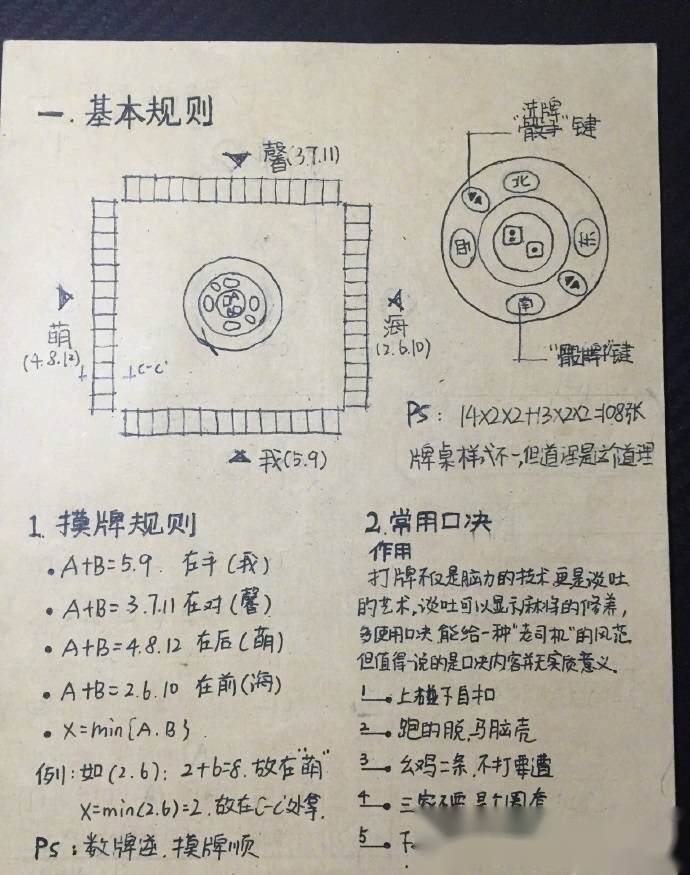 一. 基本规则
馨(3.7.11)
萌
(4.8.12)
C-C'
海
(2.6.10)
我(5.9)
洗牌
"骰子"键
北
西
东
南
"骰牌"键
PS: 14×2×2+13×2×2=108张
牌桌样式不一,但道理是这个道理
1. 摸牌规则
• A+B=5.9. 在手(我)
• A+B=3.7.11 在对(馨)
• A+B=4.8.12 在后(萌)
• A+B=2.6.10 在前(海)
• X=min{A.B}
例1:如(2.6): 2+6=8. 放在"萌"
X=min(2.6)=2. 放在C-C'处拿.
PS: 数牌逆. 摸牌顺
2. 常用口决
作用
打牌不仅是脑力的技术更是谈吐
的艺术,谈吐可以显示麻将的修养,
多使用口决 能给一种"老司机"的风范
但值得一说的是口决内容并无实质意义.
1 上碰下自扣
2 跑的脱,马脑壳
3 幺鸡二条,不打要遭
4 三家不要
5 下